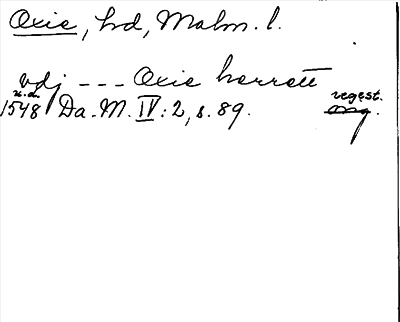 Oxie, hd, Malm. l.
vdj --- Oxie herrett
u.d. regest.
1548 Da. M. IV:2, s. 89. Orig.